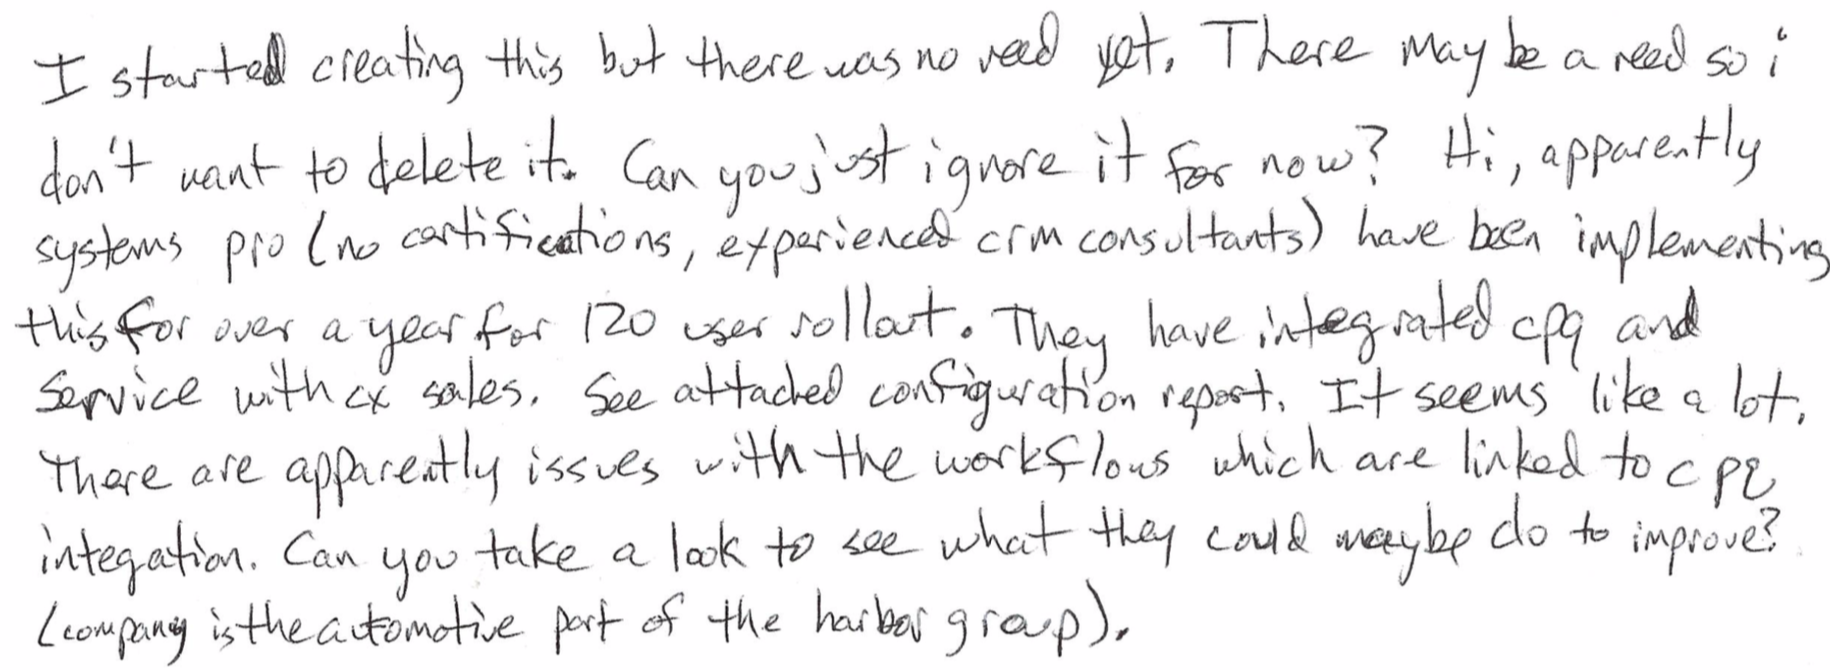 I started creating this but there was no need yet. There may be a need so i
don't want to delete it. Can you just ignore it for now? Hi, apparently
systems pro (no certifications, experienced crm consultants) have been implementing
this for over a year for 120 user rollout. They have integrated cpq and
service with cx sales. See attached configuration report. It seems like a lot.
There are apparently issues with the workflows which are linked to cpq
integation. Can you take a look to see what they could maybe do to improve?
(company is the automotive part of the harbor group).